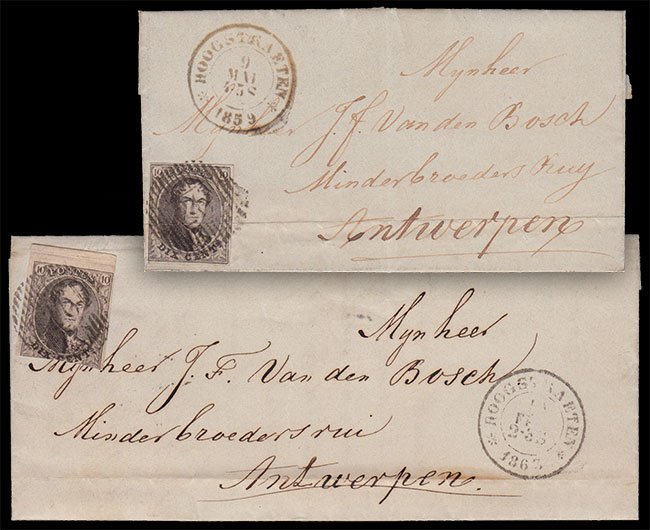 * HOOGSTRAETEN *
9
MAI
1859
Mynheer
Mynheer J. f. Van den Bosch
Minderbroeders Ruy
Antwerpen
10
DIX CENT
10 POSTES 10
DIX CENT
Mynheer
Mynheer J. F. Van den Bosch
Minderbroedersrui
Antwerpen.
* HOOGSTRAETEN *